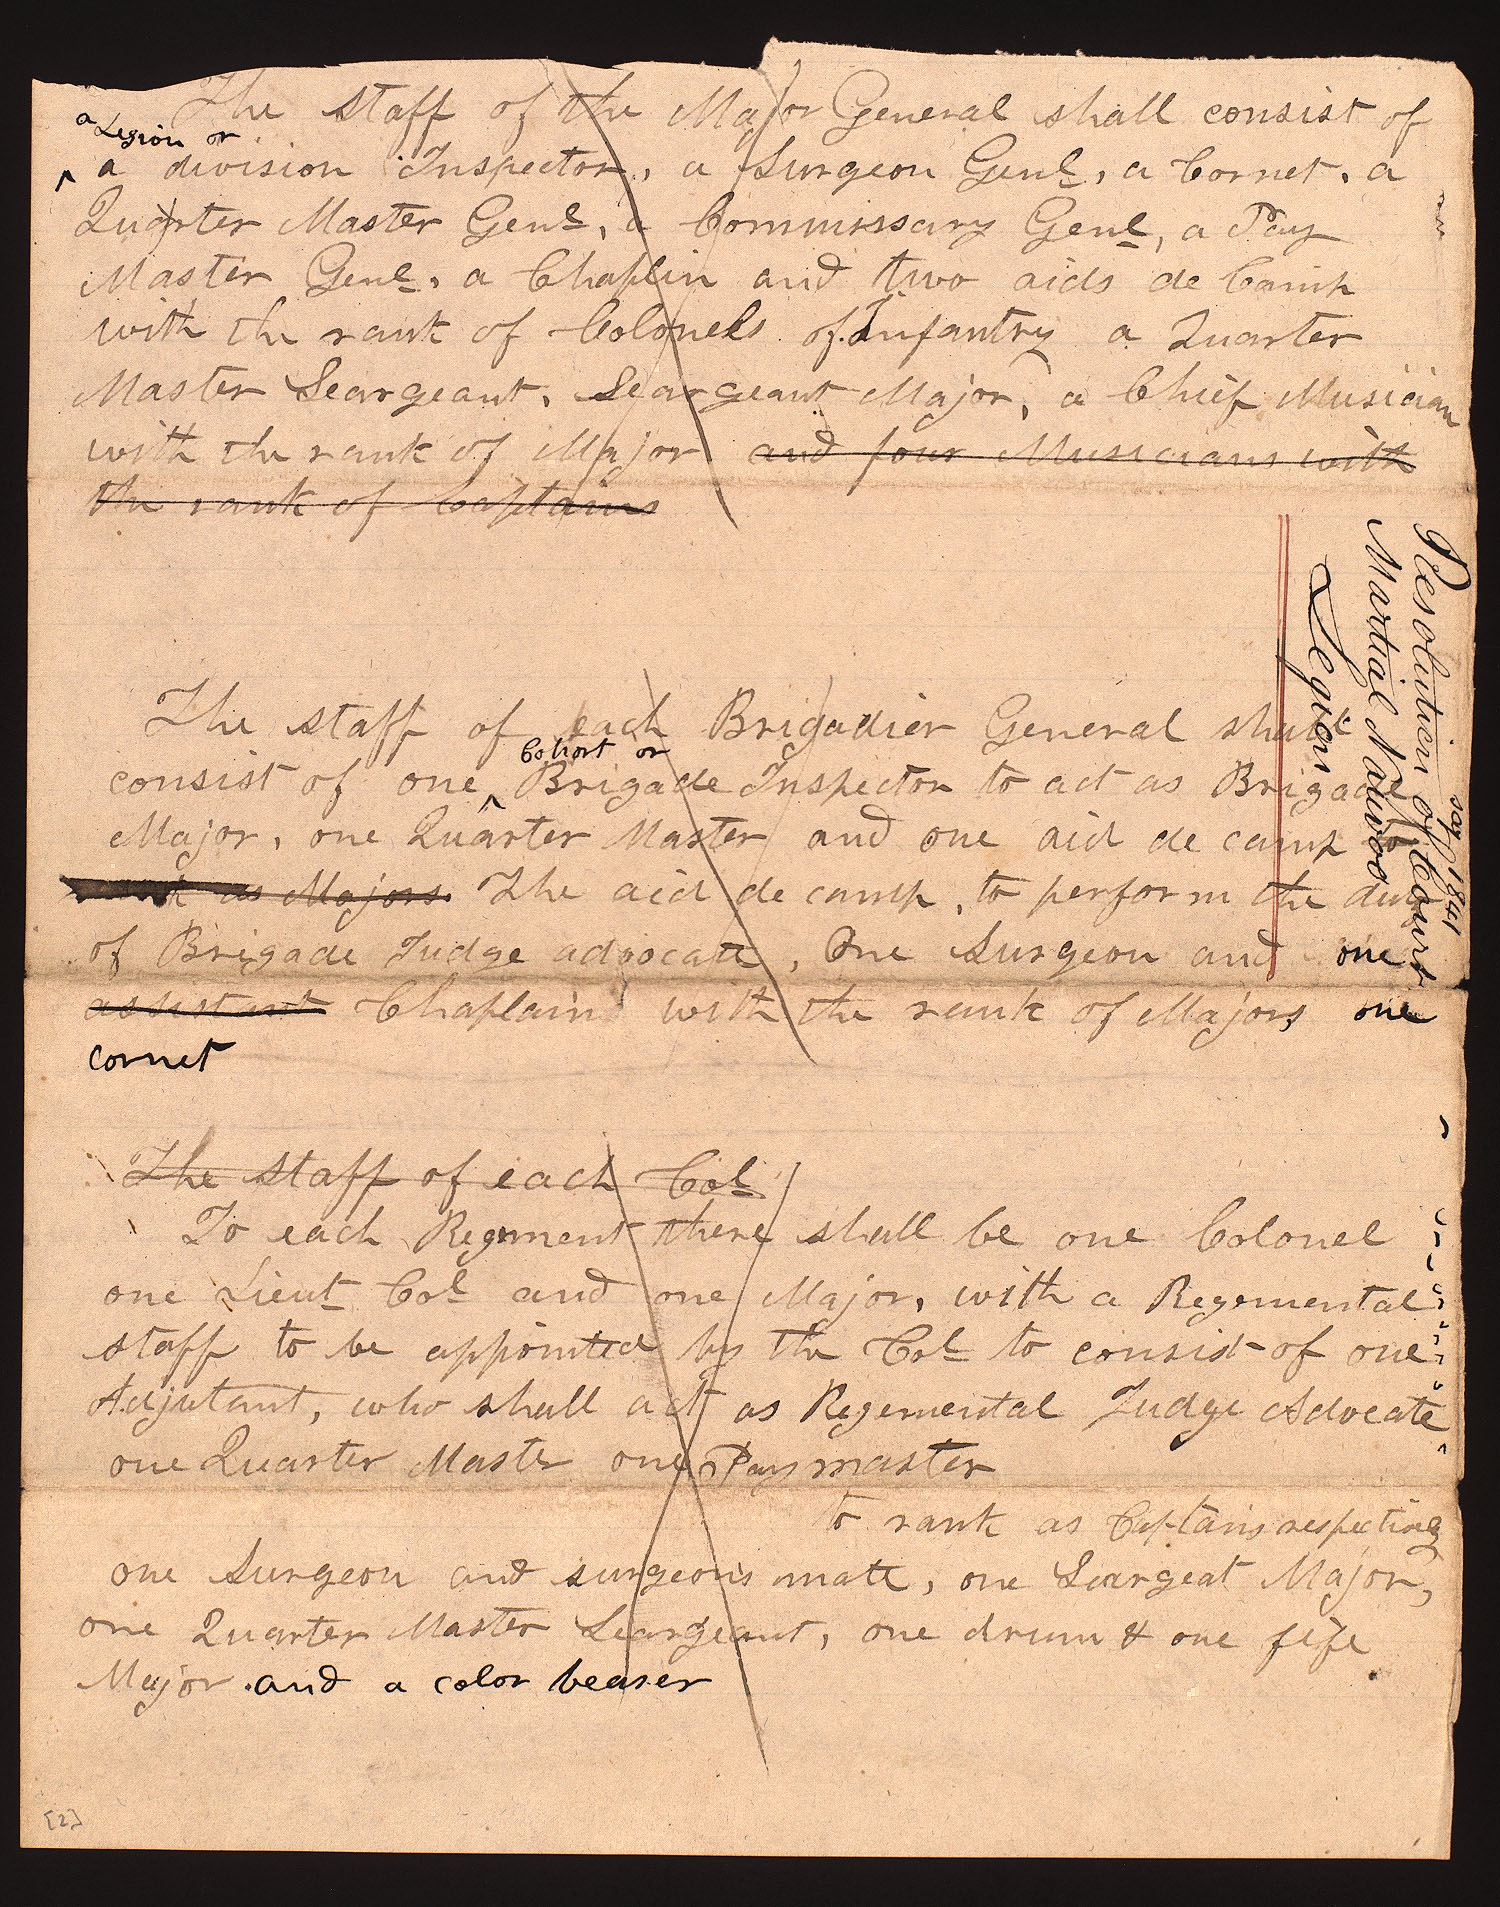 The staff of the Major General shall consist of
a Legion or
a division Inspector, a Surgeon Genl, a Cornet, a
Quarter Master Genl, a Commissary Genl, a Pay
Master Genl, a Chaplin and two aids de Camp
with the rank of Colonels of Infantry a Quarter
Master Seargeant, Seargeant Major, a Chief Musician
with the rank of Major and four Musicians with
the rank of Captains
The staff of each Brigadier General shall
Cohort or
consist of one Brigade Inspector to act as Brigade
Major, one Quarter Master and one aid de camp to
as Majors. The aid de camp, to perform the duty
of Brigade Judge advocate, One Surgeon and one
assistant Chaplain with the rank of Majors, one
cornet
The staff of each Col
To each Regement there shall be one Colonel
one Lieut Col and one Major, with a Regemental
staff to be appointed by the Col to consist of one
Adjutant, who shall act as Regemental Judge Advocate
one Quarter Master one Paymaster
to rank as Captains respectively
one Surgeon and surgeons mate, one Seargeat Major,
one Quarter Master Seargeant, one drum & one fife
Major and a color bearer
[2]
say 1841
Resolution of Court
Martial Nauvoo
Legion